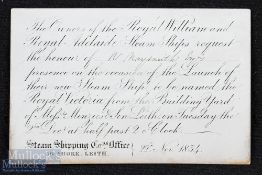 The Owners of the Royal William and
Royal Adelaide Steam Ships request
the honour of
presence on the occasion of the Launch of
their new Steam Ship to be named the
Royal Victoria from the Building Yard
of Messrs Menzies & Son Leith on Tuesday the
Decr at half past 2 o'Clock
Steam Shipping Coys Office
SHORE, LEITH.
Novr 1834.
Mullock's